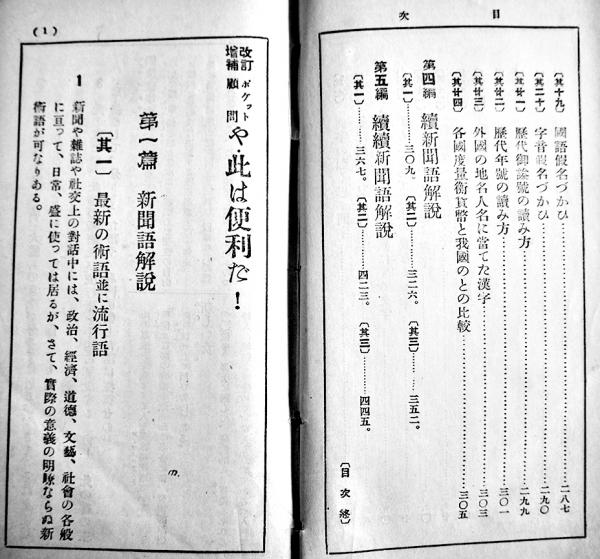 目次
〔其十九〕 國語假名づかひ……二八七
〔其二十〕 字音假名づかひ……二九〇
〔其廿一〕 歷代御諡號の讀み方……二九九
〔其廿二〕 歷代年號の讀み方……三〇一
〔其廿三〕 外國の地名人名に當てた漢字……三〇三
〔其廿四〕 各國度量衡貨幣と我國のとの比較……三〇五
第四編 續新聞語解說
〔其一〕……三〇九。〔其二〕……三二六。〔其三〕……三五二。
第五編 續續新聞語解說
〔其一〕……三六七。〔其二〕……四二三。〔其三〕……四四五。
〔目次終〕
(1)
改訂增補 ポケット顧問 や、此は便利だ!
第一篇 新聞語解說
〔其一〕 最新の術語並に流行語
1 新聞や雜誌や社交上の對話中には、政治、經濟、道德、文藝、社會の各般
に亘って、日常、盛に使っては居るが、さて、實際の意義の明瞭ならぬ新
術語が可なりある。